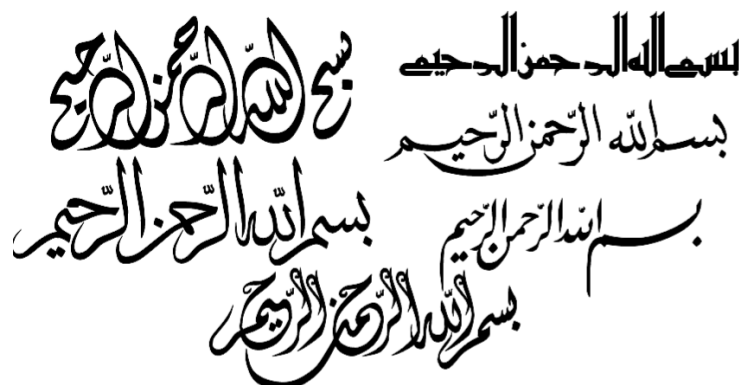 بسم الله الرحمن الرحيم
بسم الله الرحمن الرحيم
بسم الله الرحمن الرحيم
بسم الله الرحمن الرحيم
بسم الله الرحمن الرحيم
بسم الله الرحمن الرحيم